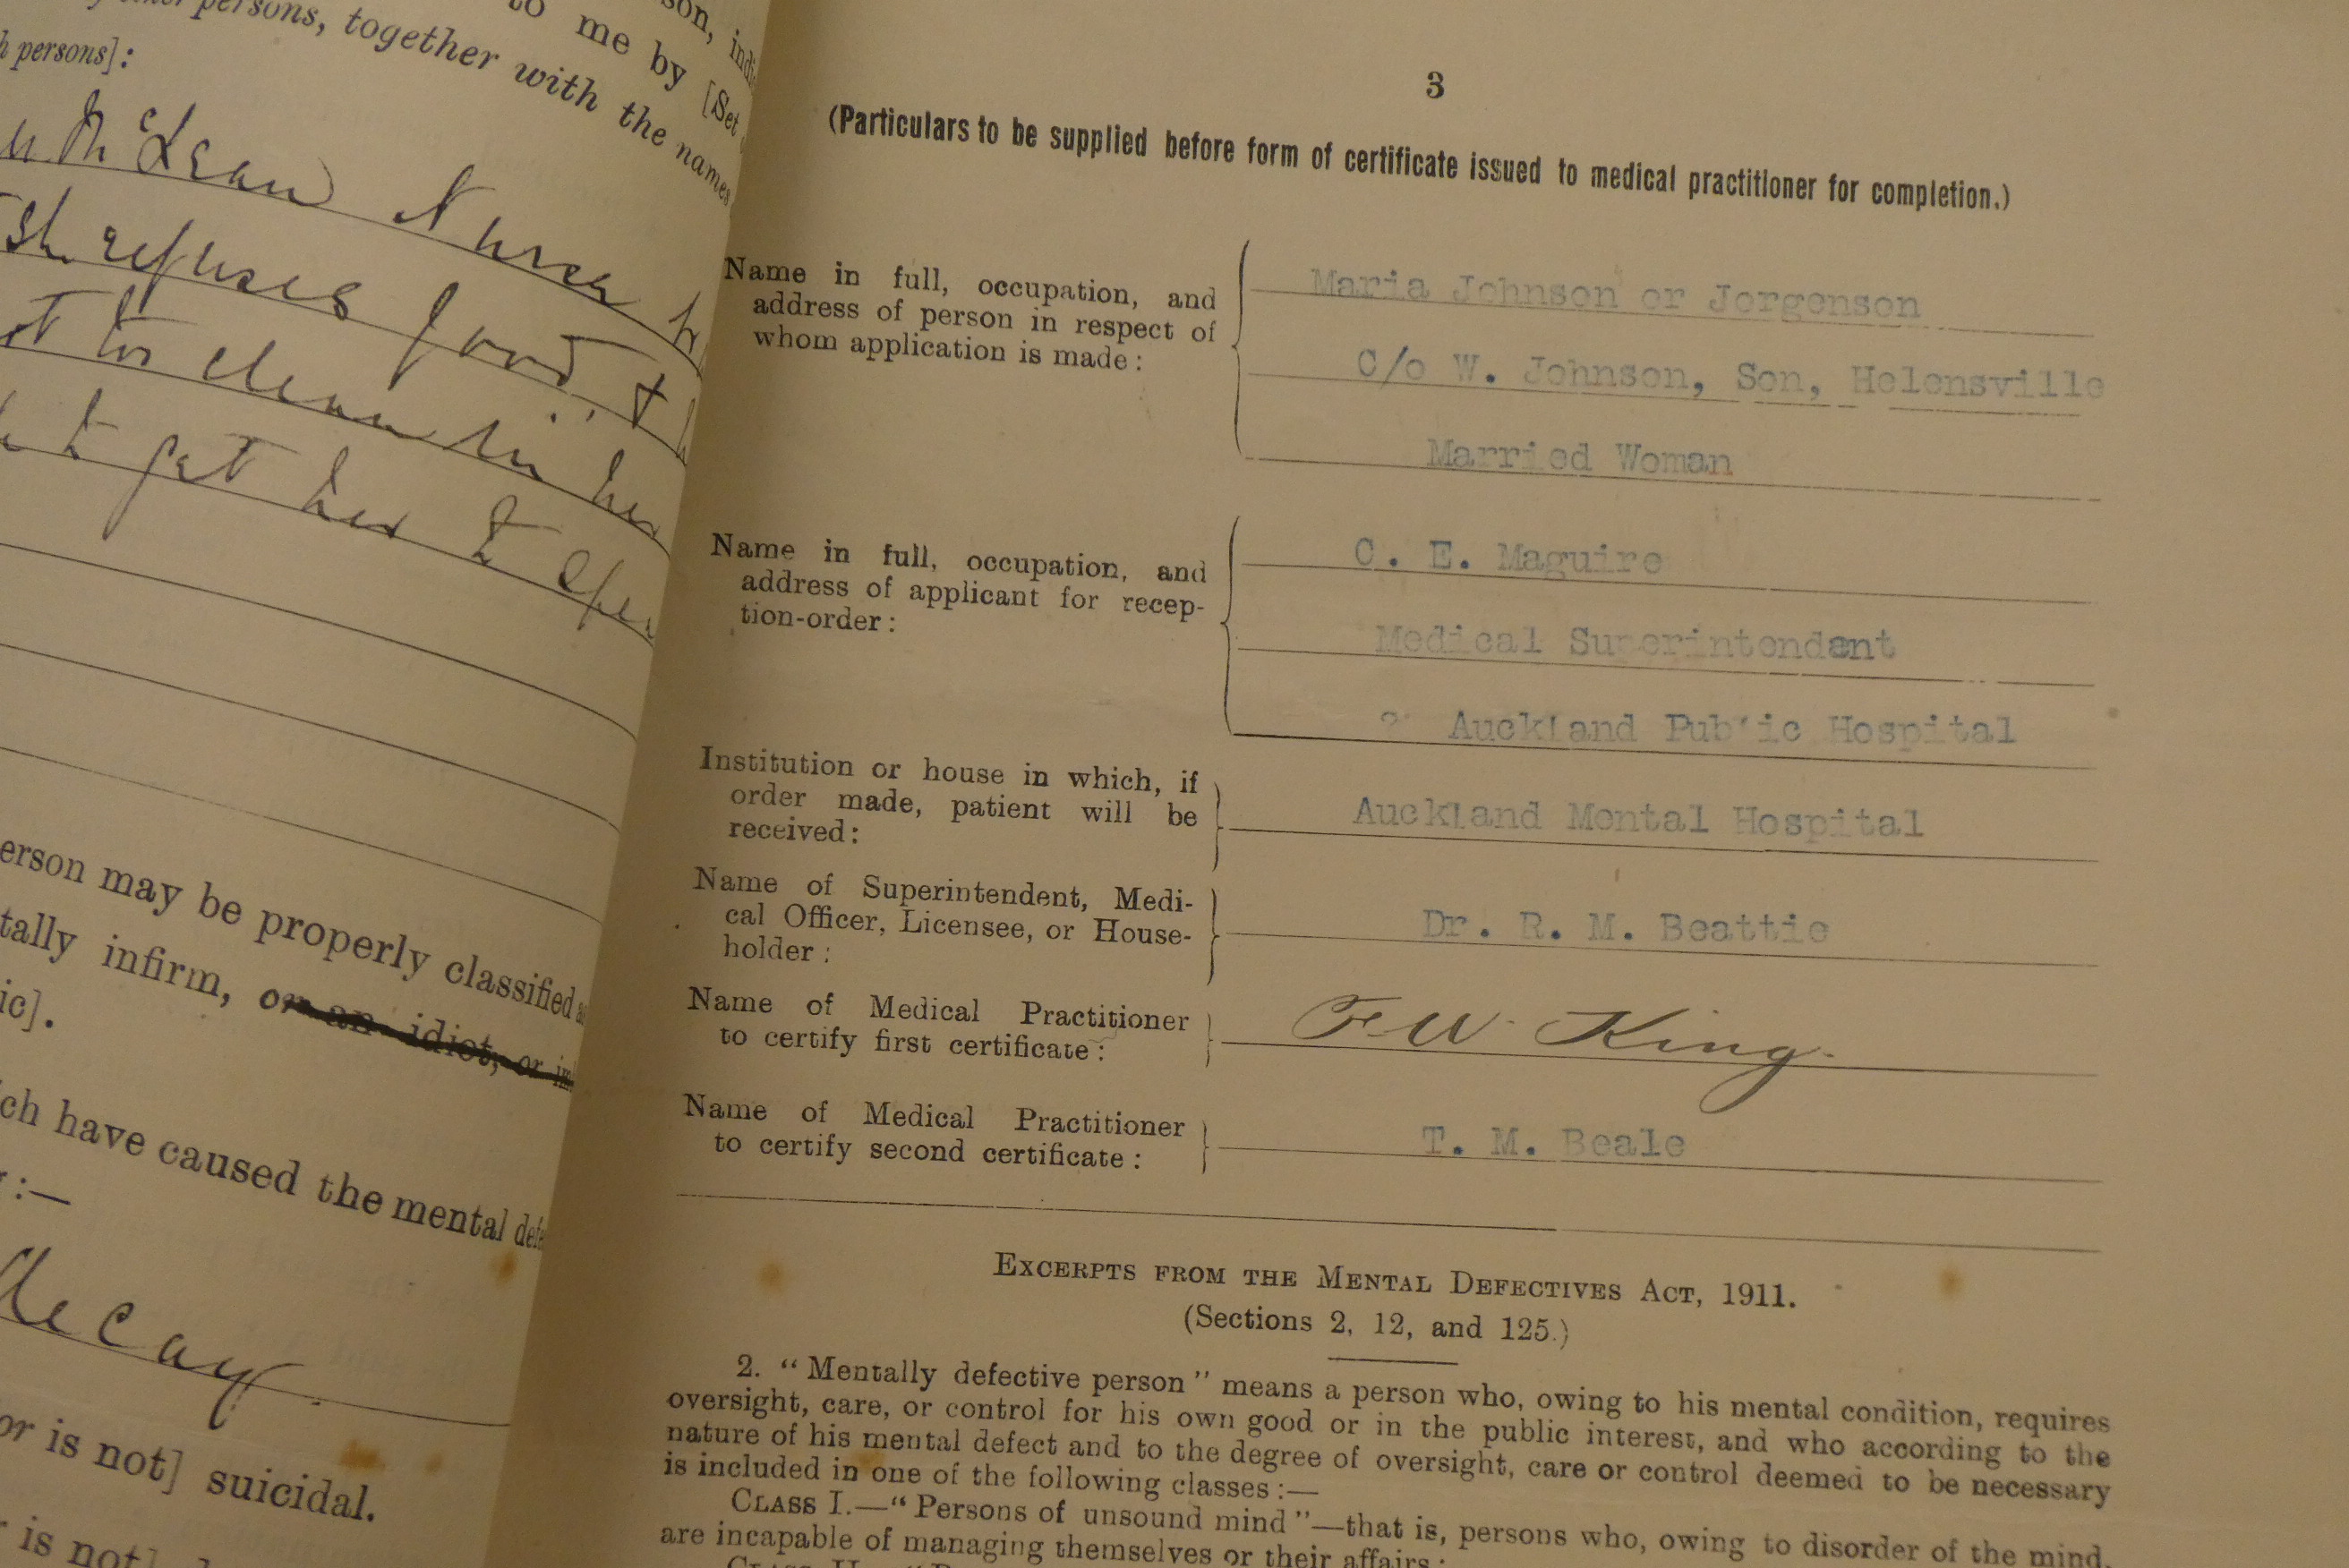 persons, together with the names
to me by [Set
son,
h persons]:
McLean Nurse
refuses food, &
clean in her
get her to
erson may be properly classified
tally infirm, or an idiot, or
ic].
ch have caused the mental
:—
decay
or is not] suicidal.
is not]
3
(Particulars to be supplied before form of certificate issued to medical practitioner for completion.)
Name in full, occupation, and
address of person in respect of
whom application is made:
Maria Johnson or Jorgenson
C/o W. Johnson, Son, Helensville
Married Woman
Name in full, occupation, and
address of applicant for recep-
tion-order:
C. E. Maguire
Medical Superintendant
Auckland Public Hospital
Institution or house in which, if
order made, patient will be
received:
Auckland Mental Hospital
Name of Superintendent, Medi-
cal Officer, Licensee, or House-
holder:
Dr. R. M. Beattie
Name of Medical Practitioner
to certify first certificate:
F. W. King.
Name of Medical Practitioner
to certify second certificate:
T. M. Beale
EXCERPTS FROM THE MENTAL DEFECTIVES ACT, 1911.
(Sections 2, 12, and 125.)
2. "Mentally defective person" means a person who, owing to his mental condition, requires
oversight, care, or control for his own good or in the public interest, and who according to the
nature of his mental defect and to the degree of oversight, care or control deemed to be necessary
is included in one of the following classes:—
CLASS I.—"Persons of unsound mind"—that is, persons who, owing to disorder of the mind,
are incapable of managing themselves or their affairs;